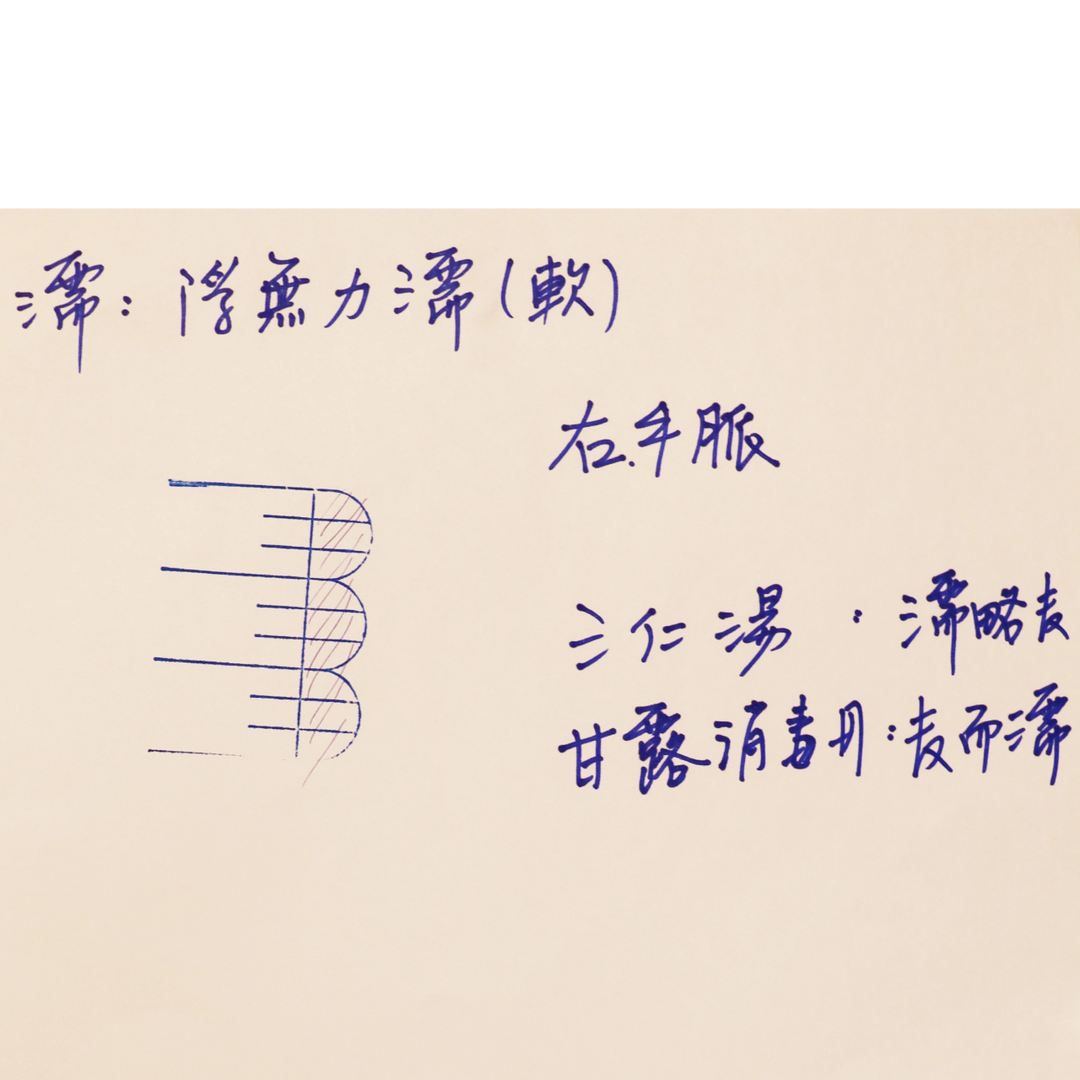 濡：浮無力濡（軟）
右手脈
三仁湯：濡略
甘露消毒丹：而濡